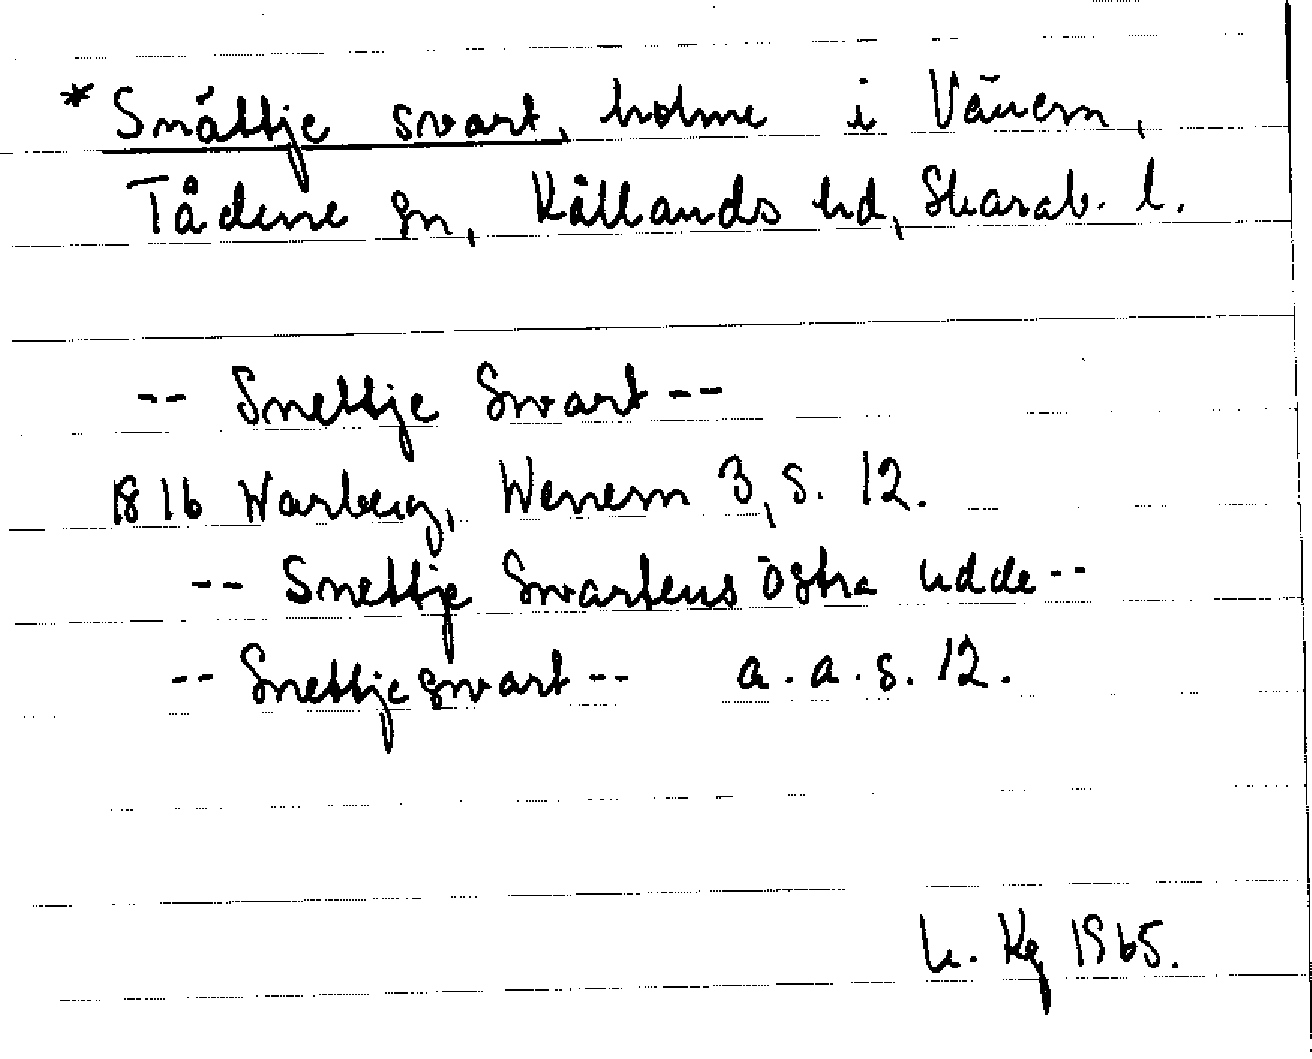 * Snättje svart, holme i Vänern,
Tådene sn, Kållands hd, Skarab. l.
-- Snettje Svart --
1816 Warberg, Wenern 3, s. 12.
-- Snettje Svartens östra udde --
-- Snettjesvart -- a. a. s. 12.
1965.